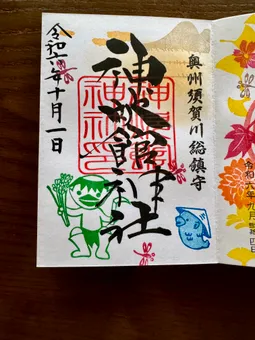 奥州須賀川総鎮守
神炊館神社
令和六年十月一日
神社印
令和六年九月